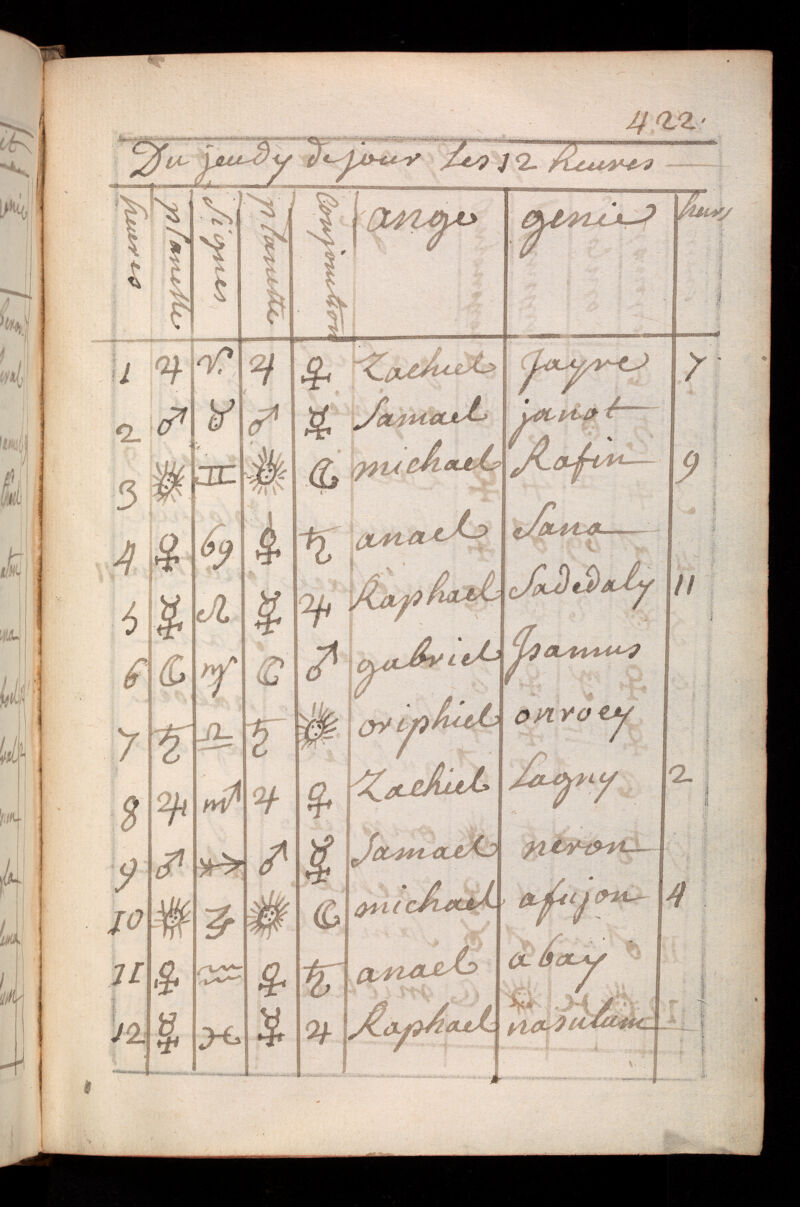 422.
Du jeudy de jour les 12 heures
heures planette signes planette Conjonction ange genie heurs
1 ♃ ♈ ♃ ♀ Zachiel Jayre 7
2 ♂ ♉ ♂ ☿ Samael janot
3 ☉ ♊ ☉ ☾ michael Rafin 9
4 ♀ ♋ ♀ ♄ anael Sana
5 ☿ ♌ ☿ ♃ Raphael Sadedaly 11
6 ☾ ♍ ☾ ♂ gabriel Jsamus
7 ♄ ♎ ♄ ☉ oriphiel onroey
8 ♃ ♏ ♃ ♀ Zachiel Lagny 2
9 ♂ ♐ ♂ ☿ Samael neron
10 ☉ ♑ ☉ ☾ michael afujon 4
11 ♀ ♒ ♀ ♄ anael abay
12 ☿ ♓ ☿ ♃ Raphael nasulum